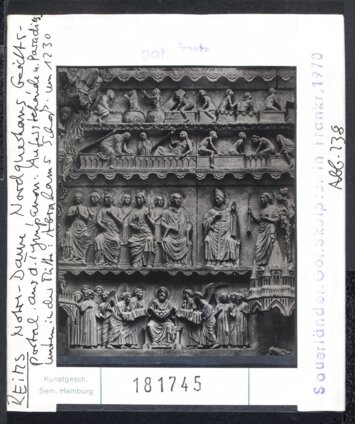 got. Frankr.
REIMS Notre-Dame Nordquerhaus Gerichts-
Portal. aus d. Tympanon: Auferstehende, Paradies
unten in der Mitte: Abrahams Schoß. um 1230
Sauerländer, Got. Skulptur in Frankr, 1970
Abb. 238
Kunstgesch.
Sem. Hamburg
181745